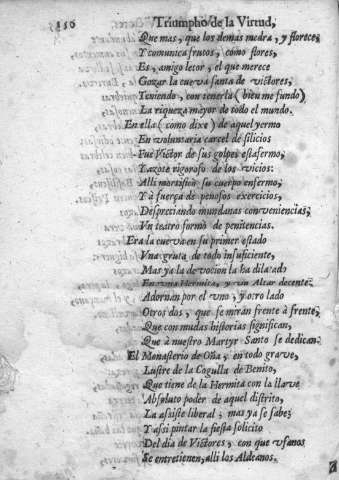 Triumpho de la Virtud,
Que mas, que los demas medra, y florece;
Y comunica frutos, como flores,
Es, amigo letor, el que merece
Gozar la cueva santa de victores,
Teniendo, con tenerla (bien me fundo)
La riqueza mayor de todo el mundo.
En ella (como dixe) de aquel yermo
En voluntaria carcel de silicios
Fue Victor de sus golpes estafermo;
Y azote rigoroso de los vicios:
Alli mortificò su cuerpo enfermo;
Y à fuerça de penosos exercicios,
Despreciando mundanas conveniencias;
Un teatro formò de penitencias.
Era la cueva en su primer estado
Vna gruta de todo insuficiente,
Mas ya la devocion la ha dilatado
En una Hermita, y un Altar decente;
Adornan por el vno, y otro lado
Otros dos, que se miran frente à frente;
Que con mudas historias significan,
Que à nuestro Martyr Santo se dedican.
El Monasterio de Oña, en todo grave,
Lustre de la Cogulla de Benito,
Que tiene de la Hermita con la llave
Absoluto poder de aquel distrito,
La assiste liberal; mas ya se sabe;
Y assi pintar la fiesta solicito
Del dia de Victores, con que vfanos
Se entretienen, alli los Aldeanos.